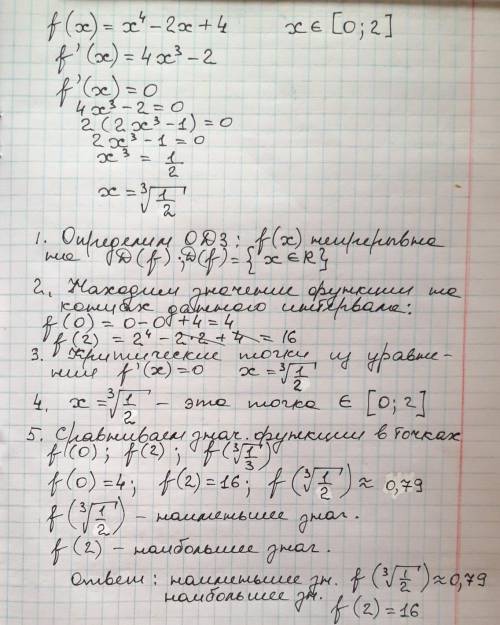 f(x) = x⁴ - 2x + 4    x ∈ [0; 2]
f'(x) = 4x³ - 2
f'(x) = 0
4x³ - 2 = 0
2(2x³ - 1) = 0
2x³ - 1 = 0
x³ = 1/2
x = ∛(1/2)
1. Определим ОДЗ: f(x) непрерывна
на D(f); D(f) = {x ∈ R}
2. Находим значение функции на
концах данного интервала:
f(0) = 0 - 0 + 4 = 4
f(2) = 2⁴ - 2·2 + 4 = 16
3. Критические точки из уравне-
ния f'(x) = 0    x = ∛(1/2)
4. x = ∛(1/2) - это точка ∈ [0; 2]
5. Сравниваем знач. функции в точках
f(0); f(2); f(∛(1/3))
f(0) = 4; f(2) = 16; f(∛(1/2)) ≈ 0,79
f(∛(1/2)) - наименьшее знач.
f(2) - наибольшее знач.
Ответ: наименьшее зн. f(∛(1/2)) ≈ 0,79
наибольшее зн. f(2) = 16